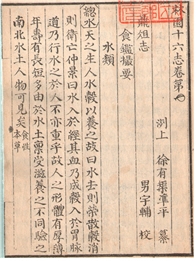 林園十六志卷第
洌上 徐有榘準平 纂
鼎俎志
男 宇輔 校
食鑑撮要
水類
總水天之生人水穀以養之故曰水去則榮散穀消
則衛亡仲景曰水入於經其血乃成穀入於胃脉
道乃行水之於人不亦重乎故人之形體有厚薄
年壽有長短多由於水土禀受滋養之不同驗之
南北水土人物可見矣食物本草